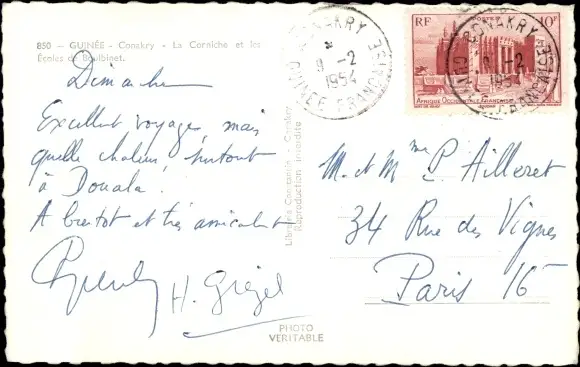 850 — GUINÉE - Conakry - La Corniche et les
Écoles de Boulbinet.
Dimanche
Excellent voyage, mais
quelle chaleur, surtout
à Douala!
A bientôt et très amicalement
H.
Librairie Constantin - Conakry
Reproduction interdite
PHOTO
VERITABLE
CONAKRY
9 -2
1954
GUINÉE FRANÇAISE
RF
POSTES
10F
AFRIQUE OCCIDENTALE FRANÇAISE
CONAKRY
-2
1954
M. et Mme P. Ailleret
34 Rue des Vignes
Paris 16e